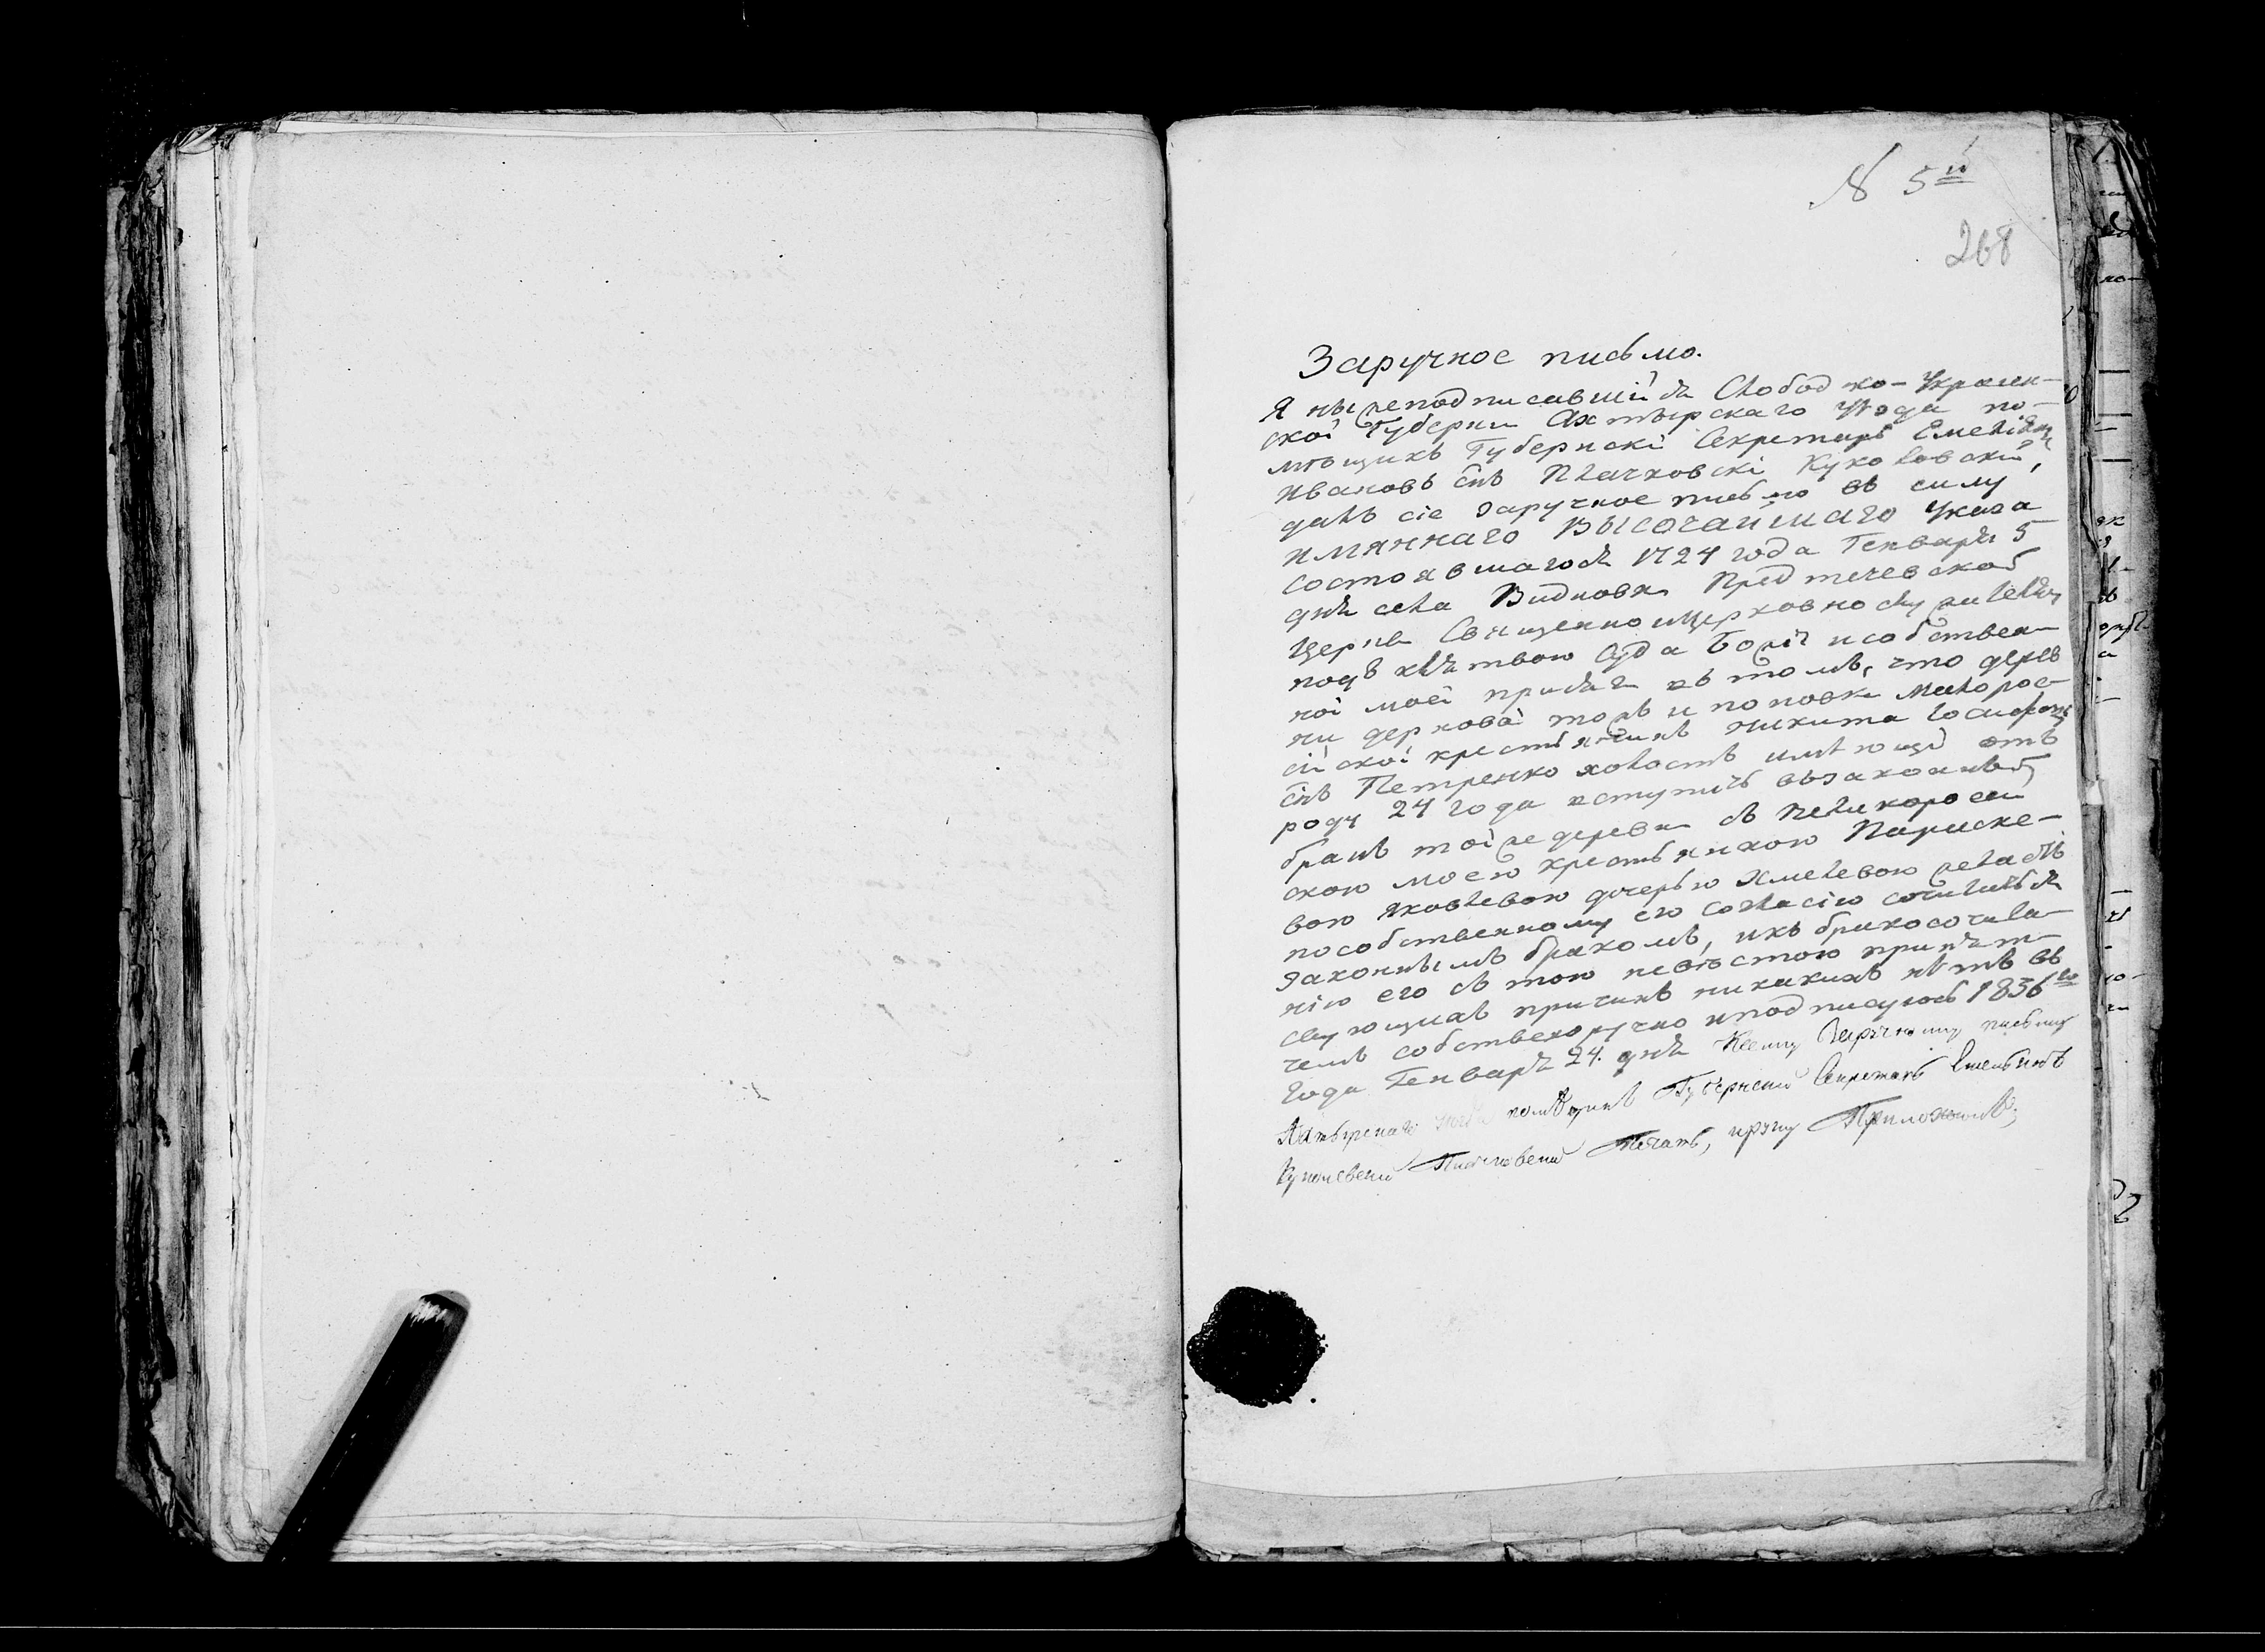 № 5й
268
Заручное письмо.
Я нижеподписавшійся Слободско-Украин-
ской Губерни Ахтырскаго уѣзда по-
мѣщикъ Губернскі Секретарь Емеліянъ
Ивановъ снъ Плачковскі Куколовскій,
далъ сіе заручное письмо въ силу
имяннаго Высочайшаго указа
состоявшагося 1724 года Генваря 5
дня села Видновки Предтечевской
Церкви Священноцерковнослужителямъ
подъ клятвою Суда Божія и собствен-
ной моей присяги въ томъ, что дерев
ни дерновой тожъ и поповки малорос-
сійской крестьянинъ Никита Іосифовъ
снъ Петренко холостъ имѣющій отъ
роду 24 года вступить въ законный
бракъ тоіже деревни съ Великоросій
скою моею крестьянкою Параске-
вою Яковлевою дочерью Хмелевою желаетъ
пособственному его согласію сочитаться
законнымъ бракомъ, икъ бракосочита-
нію его съ тою невѣстою припятт-
свующихъ причинъ никакихъ нѣтъ въ
чемъ собственоручно иподписуюсь 1836го
года Генваря 24. дня Ксему Заручному письму
Ахтырскаго уѣзда помѣщикъ Губернскій Секретарь Емельянъ
Куколевский Плачковский Печать, ируку Приложилъ;